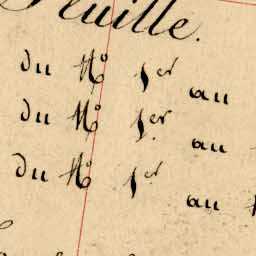 Feuille.
du N° 1er au
du N° 1er au
du N° 1er au